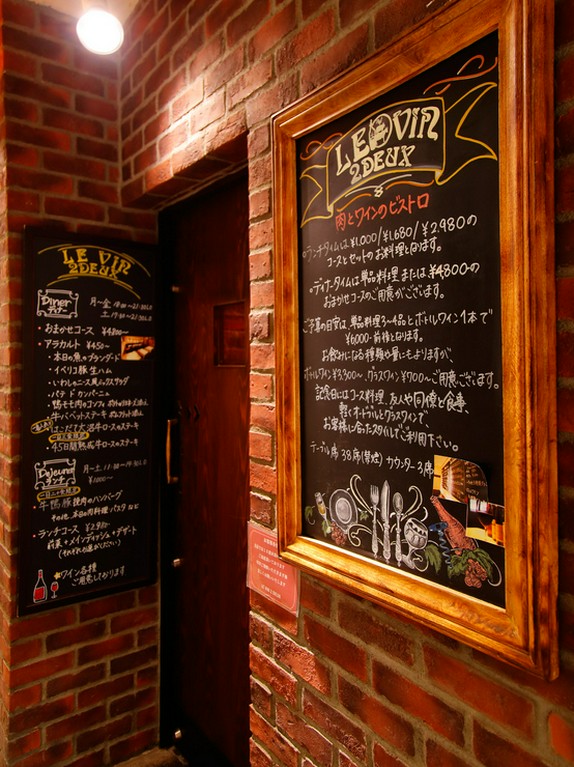 LE VIN
2DEUX
Diner
ディナー
・おまかせコース ¥4800〜
・アラカルト ¥450〜
・本日の魚のブランダード
・イベリコ豚 生ハム
・いわしのニース風ミックスサラダ
・パテ ド カンパーニュ
・鴨モモ肉のコンフィ
・牛ハベットステーキ
・はこだて大沼牛ロースのステーキ
・45日間熟成牛ロースのステーキ
Dejeuner
ランチ
¥1000〜
・牛鴨豚挽肉のハンバーグ
その他、本日の肉料理 パスタ など
・ランチコース ¥2980〜
前菜+メインディッシュ+デザート
(それぞれお選びください)
ワイン各種
ご用意しております
LE VIN
2DEUX
肉とワインのビストロ
○ランチタイムは¥1,000/¥1,680/¥2,980の
コースとセットのお料理となります。
○ディナータイムは単品料理または¥4800〜の
おまかせコースのご用意がございます。
ご予算の目安は、単品料理3〜4品とボトルワイン1本で
¥6000-前後となります。
お飲みになる種類や量にもよりますが、
ボトルワイン¥3,300〜、グラスワイン¥700〜ご用意ございます。
記念日にはコース料理、友人や同僚と食事、
軽くオードブルとグラスワインで、
お客様に合ったスタイルでご利用下さい。
テーブル席 38席(禁煙) カウンター3席